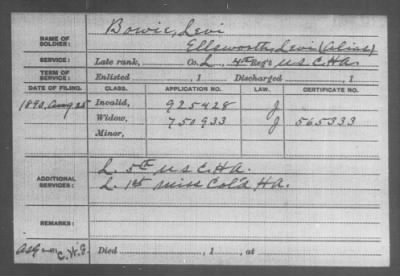 NAME OF SOLDIER: Bowie, Levi
Ellsworth, Levi (Alias)
SERVICE: Late rank, Co. L, 4th Reg't U.S.C.H.A.
TERM OF SERVICE: Enlisted , 1 Discharged , 1
DATE OF FILING. CLASS. APPLICATION NO. LAW. CERTIFICATE NO.
1890, Aug 25 Invalid, 925428 J
Widow, 750933 J 565333
Minor,
ADDITIONAL SERVICES: L. 5th U S C. H A.
L. 1st Miss Col'd H A.
REMARKS:
C. W. J. Died , 1 , at